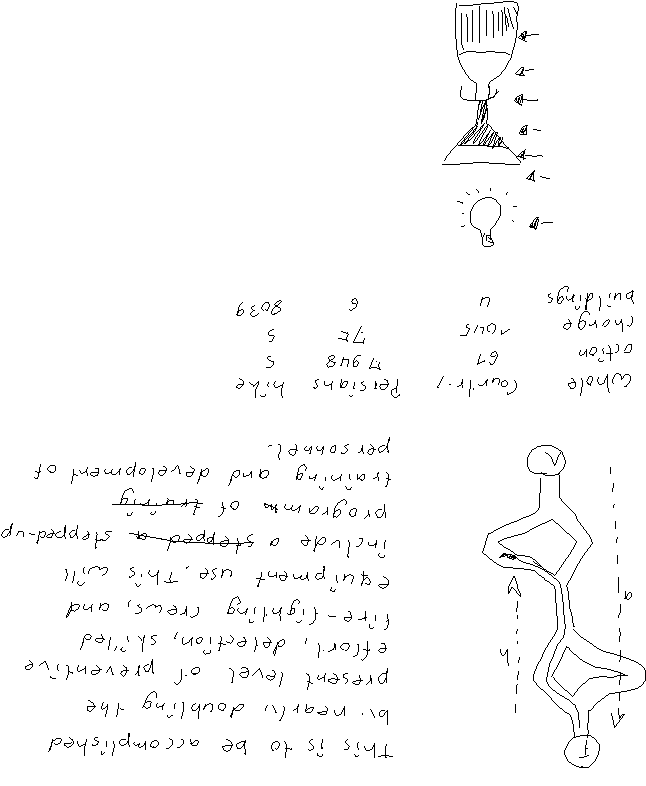 This is to be accomplished
by nearly doubling the
present level of preventive
effort, detection, skilled
fire-fighting crews, and
equipment use. This will
include a stepped a stepped-up
programm of
training and development of
personnel.
T
h
a
V
Whole Country Persians hike
action 61 17948 5
change 1045 75 5
buildings 4 6 8039